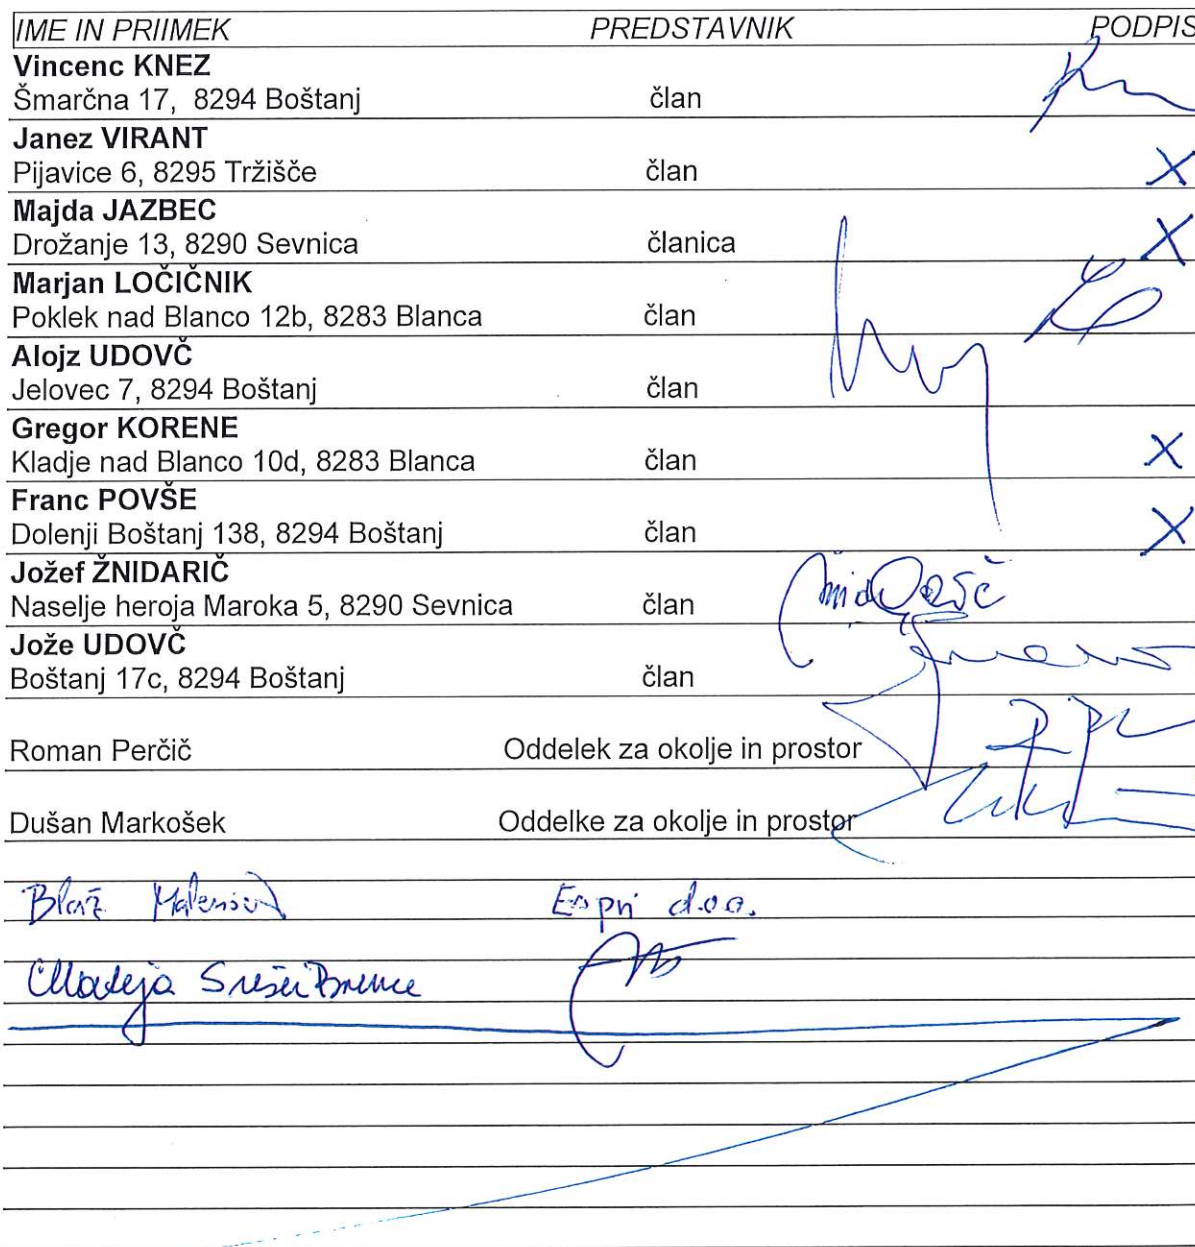 IME IN PRIIMEK PREDSTAVNIK PODPIS
Vincenc KNEZ
Šmarčna 17, 8294 Boštanj član
Janez VIRANT
Pijavice 6, 8295 Tržišče član X
Majda JAZBEC
Drožanje 13, 8290 Sevnica članica X
Marjan LOČIČNIK
Poklek nad Blanco 12b, 8283 Blanca član
Alojz UDOVČ
Jelovec 7, 8294 Boštanj član
Gregor KORENE
Kladje nad Blanco 10d, 8283 Blanca član X
Franc POVŠE
Dolenji Boštanj 138, 8294 Boštanj član X
Jožef ŽNIDARIČ
Naselje heroja Maroka 5, 8290 Sevnica član
Jože UDOVČ
Boštanj 17c, 8294 Boštanj član
Roman Perčič Oddelek za okolje in prostor
Dušan Markošek Oddelke za okolje in prostor
Blaž d.o.o.
Mateja